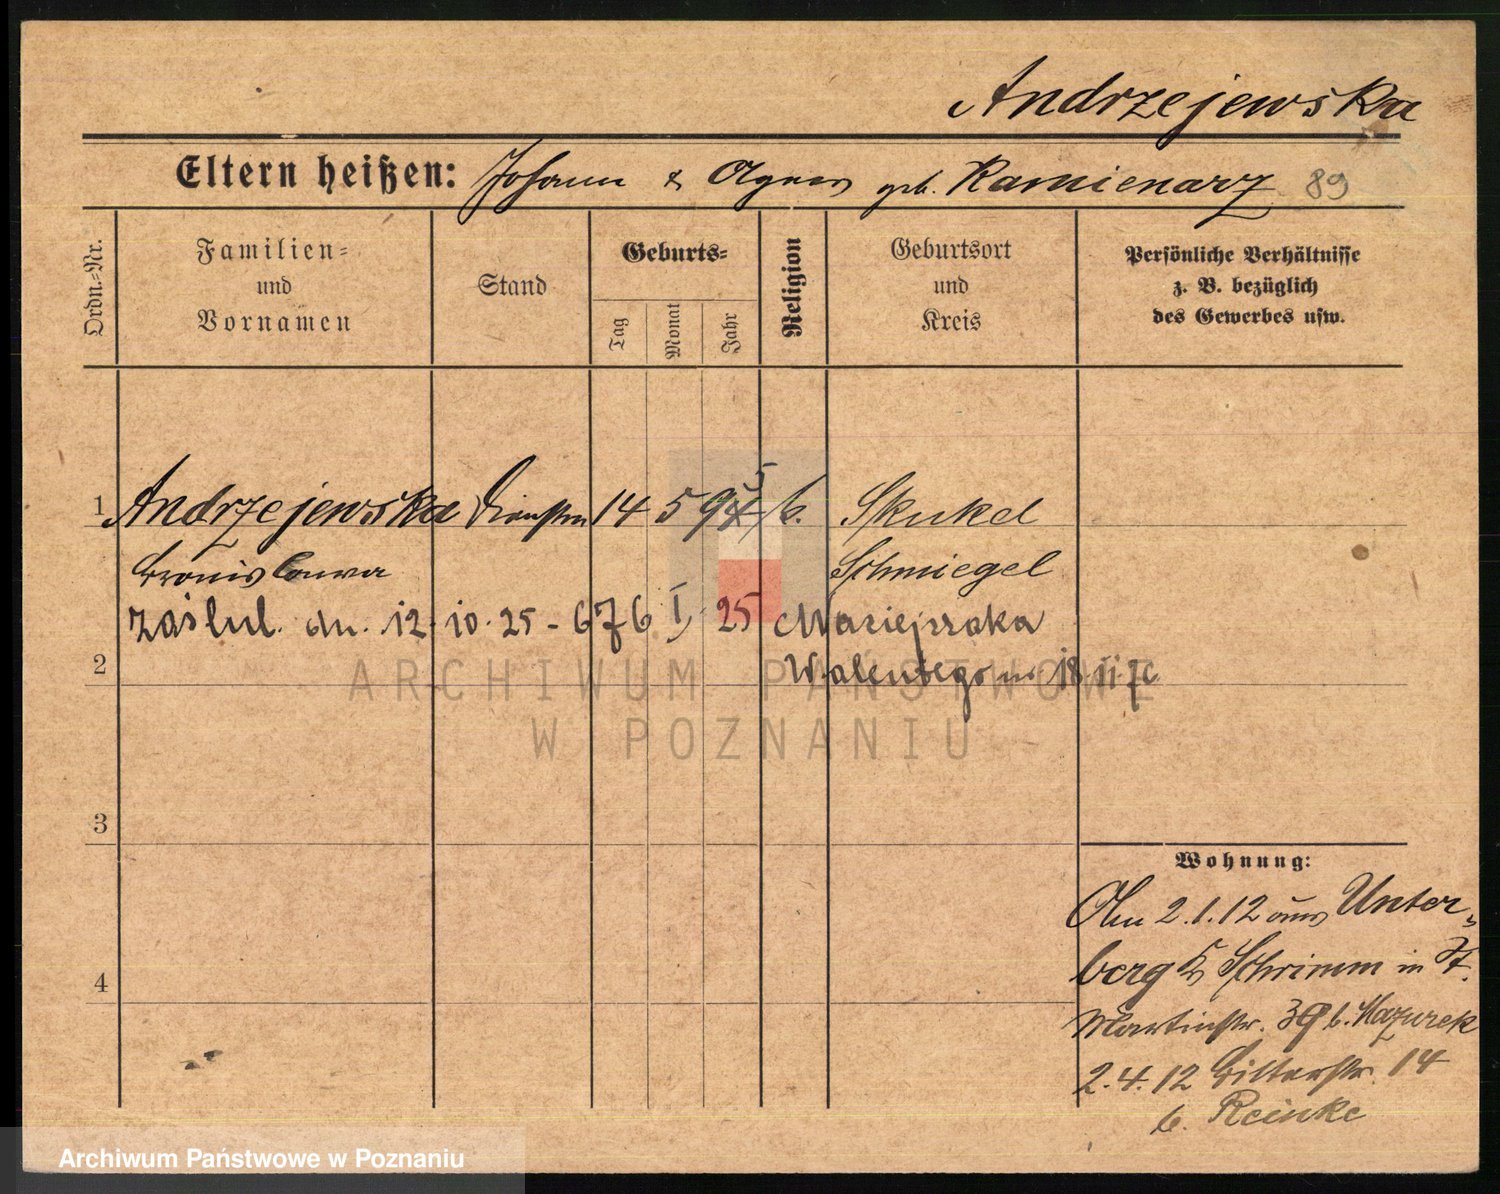 Andrzejewska
Eltern heißen: Johann & Agnes geb. Kamienarz 89
Ordn.-Nr.
Familien-
und
Vornamen
Stand
Geburts-
Tag
Monat
Jahr
Religion
Geburtsort
und
Kreis
Persönliche Verhältnisse
z. B. bezüglich
des Gewerbes usw.
1 Andrzejewska 14 5 94 5 k. Skukel
Bronislawa Schmiegel
zaślub. dn. 12. 10. 25 - 676 I, 25 Maciejszaka
2 Walentego ur 18.
ARCHIWUM PAŃSTWOWE
W POZNANIU
3
4
Wohnung:
Am 2.1.12 aus Unter-
berg Schrimm in St.
Martinstr. 39 b. Mazurek
2.4.12 Ritterstr. 14
b. Reinke
Archiwum Państwowe w Poznaniu